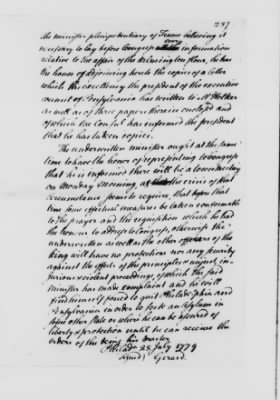 287
the minister plenipotentiary of France believing it
necessary to lay before Congress every information
relative to the affair of the Wilmington flour, he has
the honor of adjoining hereto the copies of a letter
which the excellency the president of the executive
council of Pensylvania has written to Mr Holker
as well as of three papers therein enclosed and
of which the Con has informed the president
that he has taken copies.
The underwritten minister ought at the same
time to have the honor of representing to Congress
that he is informed there will be a town meeting
on Monday morning, the crisis of that
circumstance seems to require that before that
time some effectual measures be taken conformable
to the prayer and the requisition which he had
the honor to address to Congress, otherwise the
underwritten as well as the other officers of the
King will have no protection nor any security
against the effects of the principles & unjust, in-
jurious & violent proceedings, of which the said
minister has made complaint and he will
find himself forced to quit Philadelphia and
Pensylvania in order to seek an Asylum in
some other state where he can be assured of
liberty & protection until he can receive the
orders of the King his master
Philada 24 July 1779
signed) Gerard.